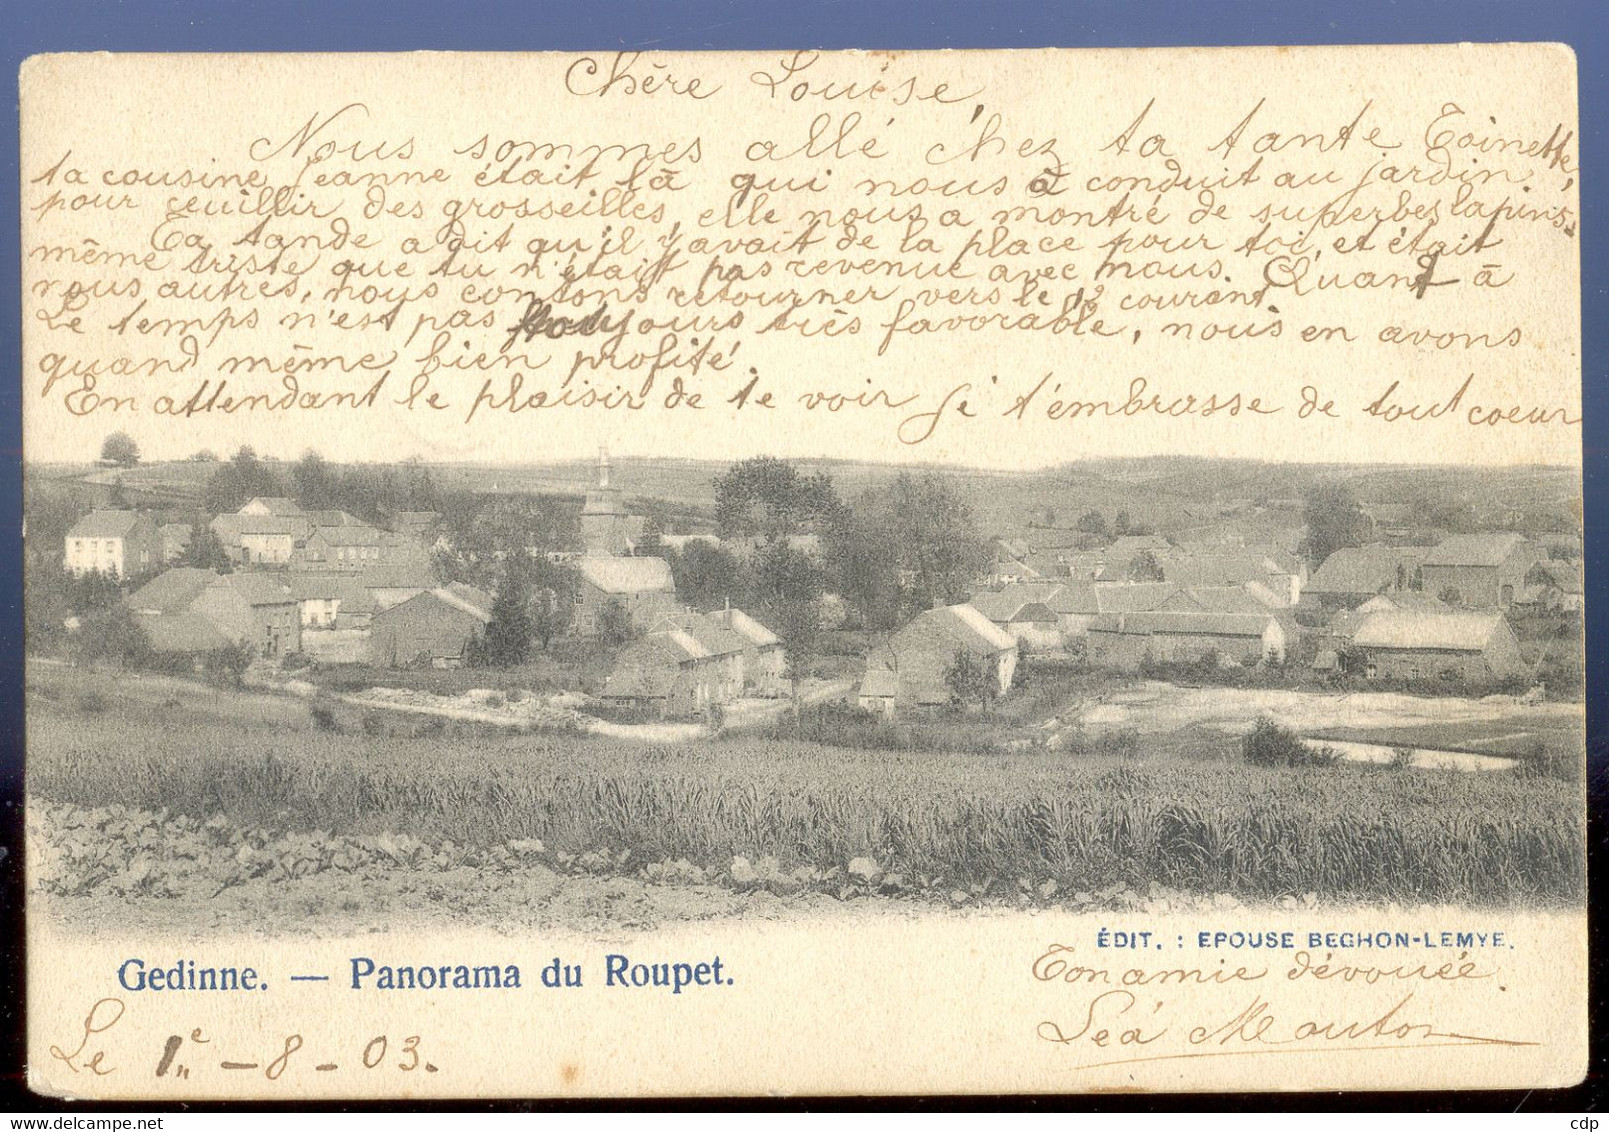 Chère Louise,
Nous sommes allé chez ta tante Toinette,
ta cousine Jeanne était là qui nous à conduit au jardin
pour ceuillir des groseilles, elle nous a montré de superbes lapins.
Ta tande a dit qu'il y avait de la place pour toi, et était
même triste que tu n'était pas revenue avec nous. Quant à
nous autres, nous contons retourner vers le 12 courant.
Le temps n'est pas toujours très favorable, nous en avons
quand même bien profité.
En attendant le plaisir de te voir je t'embrasse de tout coeur
ÉDIT. : EPOUSE BEGHON-LEMYE.
Gedinne. — Panorama du Roupet.
Ton amie dévouée.
Léa Mouton
Le 1e - 8 - 03.
cdp